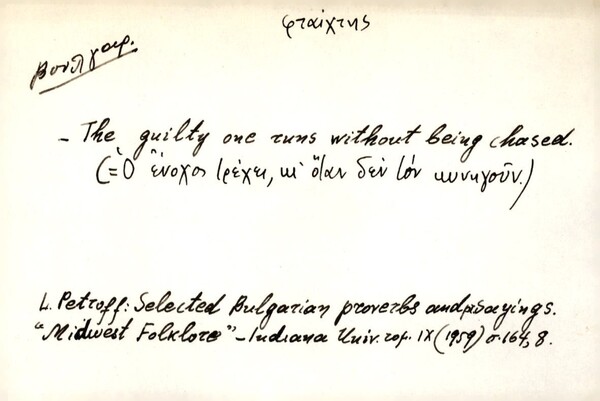 φταίχτης
βουλγαρ.
- The guilty one runs without being chased.
(= Ὁ ἔνοχος τρέχει, κι' ὅταν δὲν τὸν κυνηγοῦν.)
L. Petroff: Selected Bulgarian proverbs and sayings.
"Midwest Folklore" - Indiana Univ. τομ. IX (1959) σ. 164, 8.